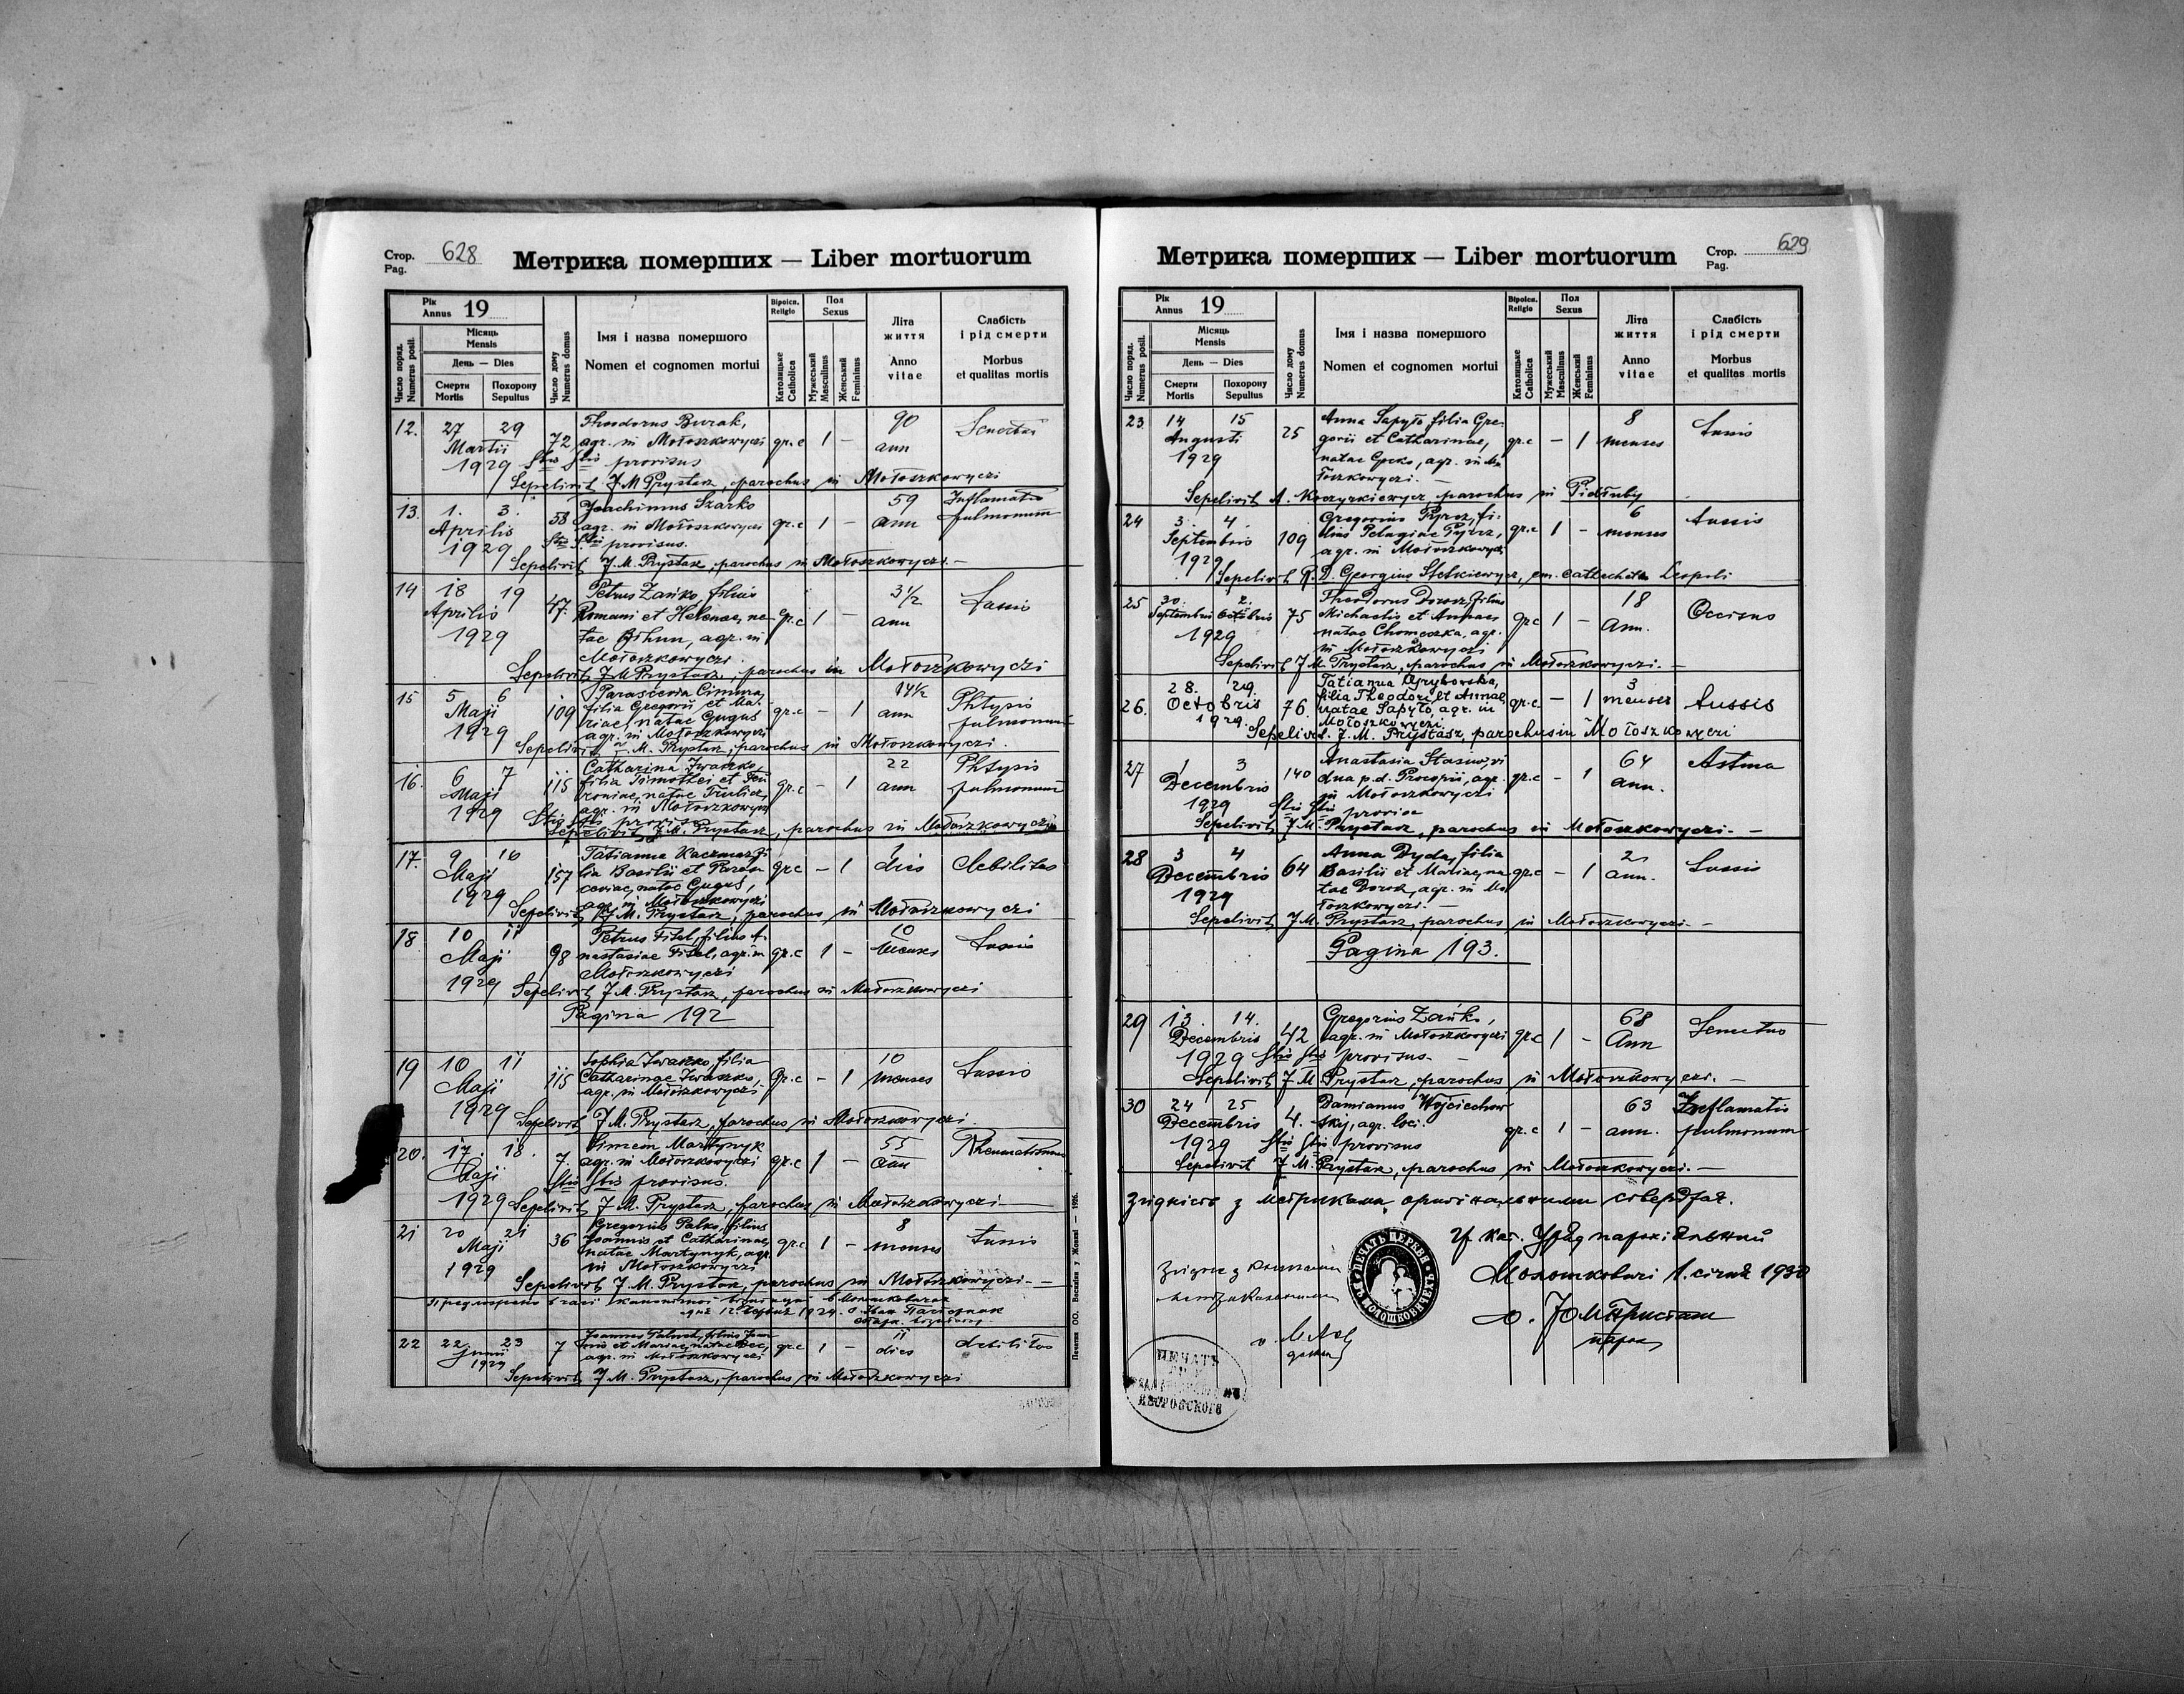 Стор. Pag. 628
Метрика померших — Liber mortuorum
Рік Annus 19
Число поряд. Numerus posit.
Місяць Mensis
День — Dies
Смерти Mortis
Похорону Sepultus
Число дому Numerus domus
Імя і назва помершого
Nomen et cognomen mortui
Віроісп. Religio
Католицьке Catholica
Пол Sexus
Мужеський Masculinus
Женський Femininus
Літа життя
Anno vitae
Слабість і рід смерти
Morbus et qualitas mortis
12. 27 29 Martii 1929 72
Theodorus Burak,
agr. in Mołoszkowyczi gr.c 1 — 90 ann
provisus
Sepelivit J M Prystasz, parochus in Mołoszkowyczi
13. 1. 3. Aprilis 1929 58
Joachimus Szarko
agr. in Mołoszkowyczi gr.c 1 — 59 ann Inflamatio pulmonum
provisus.
Sepelivit J. M. Prystasz, parochus in Mołoszkowyczi. —
14 18 19 Aprilis 1929 47.
Petrus Zańko, filius
Romani et Helenae, na-
tae Bihun, agr. in
Mołoszkowyczi gr.c 1 — 3½ ann Tussis
Sepelivit J M Prystasz, parochus in Mołoszkowyczi
15 5 6 Maji 1929 109
filia Gregorii et Ma-
riae, natae Gugus
agr. in Mołoszkowyczi gr.c — 1 14½ Phtysis pulmonum
Sepelivit J. M. Prystasz, parochus in Mołoszkowyczi.
16. 6 7 Maji 1929 115
Catharina Iwaszko,
filia Timothei et
agr. in Mołoszkowyczi gr.c — 1 22 ann Phtysis pulmonum
Sepelivit J. M. Prystasz, parochus in Mołoszkowyczi
17. 9 10 Maji 1929 157
Tatianna Kaczmar, fi-
lia Basilii et Paras-
ceviae, natae Gugus,
agr. in Mołoszkowyczi gr.c — 1 dies debilitas
Sepelivit J. M. Prystasz, parochus in Mołoszkowyczi
18. 10 11 Maji 1929 98
Petrus Fitel, filius A-
nastasiae Fitel, agr. in
Mołoszkowyczi gr.c 1 — 10 menses Tussis
Sepelivit J. M. Prystasz, parochus in Mołoszkowyczi
Pagina 192
19 10 11 Maji 1929 115
Sophia Iwaszko, filia
Catharinae Iwaszko,
agr. in Mołoszkowyczi gr.c — 1 10 menses Tussis
Sepelivit J. M. Prystasz, parochus in Mołoszkowyczi.
20. 17. 18. Maji 1929 7.
Simeon Martynyk
agr. in Mołoszkowyczi gr.c 1 — 55 ann
provisus.
Sepelivit J. M. Prystasz, parochus in Mołoszkowyczi —
21 20 21 Maji 1929 36
Gregorius Palko, filius
Joannis et Catharinae,
natae Martynyk, agr.
in Mołoszkowyczi gr.c 1 — 8 menses Tussis
Sepelivit J. M. Prystasz, parochus in Mołoszkowyczi. —
22 22 23 Junii 1929 7
agr. in Mołoszkowyczi gr.c 1 — 11 dies debilitas
Sepelivit J M. Prystasz, parochus in Mołoszkowyczi
Печатня ОО. Василіян у Жовкві — 1926.
Метрика померших — Liber mortuorum
Стор. Pag. 629
Рік Annus 19
Число поряд. Numerus posit.
Місяць Mensis
День — Dies
Смерти Mortis
Похорону Sepultus
Число дому Numerus domus
Імя і назва помершого
Nomen et cognomen mortui
Віроісп. Religio
Католицьке Catholica
Пол Sexus
Мужеський Masculinus
Женський Femininus
Літа життя
Anno vitae
Слабість і рід смерти
Morbus et qualitas mortis
23. 14 15 Augusti 1929 25
Anna Sapyło filia Gre-
gorii et Catharinae,
natae agr. in Mo-
łoszkowyczi. — gr.c — 1 8 menses Tussis
Sepelivit A. parochus in Pidłuby
24 3. 4. Septembris 1929 109
Gregorius Pyrcz, fi-
lius Pelagiae Pyrcz,
agr. in Mołoszkowyczi gr.c 1 — 6 menses Tussis
Sepelivit R. D. Georgius Stetkiewycz, em. cathecheta Leopoli
25 30. 2. Septembris Octobris 1929 75
Theodorus Dorosz, filius
Michaelis et Annae
natae Chomeszka, agr.
in Mołoszkowyczi gr.c 1 — 18 Ann. Occisus
Sepelivit J M. Prystasz, parochus in Mołoszkowyczi. —
26. 28. 29. Octobris 1929. 76
Tatianna Grybowska,
filia Theodori et Annae
natae Sapyło, agr. in
Mołoszkowyczi gr.c. — 1 3 menses Tussis
Sepelivit. J. M. Prystasz, parochus in Mołoszkowyczi
27 1 3 Decembris 1929 140
Anastasia Stasiw, vi-
dua p.d. Procopii, agr.
in Mołoszkowyczi gr.c — 1 64 ann. Astma
provisa
Sepelivit J M. Prystasz, parochus in Mołoszkowyczi. —
28 3 4 Decembris 1929 64
Anna Dyda, filia
Basilii et Mariae, na-
tae Dorosz, agr. in Mo-
łoszkowyczi. — gr.c — 1 2 ann. Tussis
Sepelivit J M. Prystasz, parochus in Mołoszkowyczi. —
Pagina 193.
29 13. 14. Decembris 1929 42
Gregorius Zańko,
agr. in Mołoszkowyczi gr.c 1 — 68 Ann Senectus
provisus. —
Sepelivit J M Prystasz, parochus in Mołoszkowyczi. —
30 24 25 Decembris 1929 4.
Damianus Wojciechow-
skyj, agr. loci. gr.c 1 — 63 ann. Inflamatio pulmonum
provisus
Sepelivit J M. Prystasz, parochus in Mołoszkowyczi. —
Згідність з метриками оригінальними стверджає.
Гр кат. Уряд парохіяльний
Молошковичі 1. січня 1930
о. Ю М Присташ
парох
ПЕЧАТЬ
ЯВОРОВСКОГО